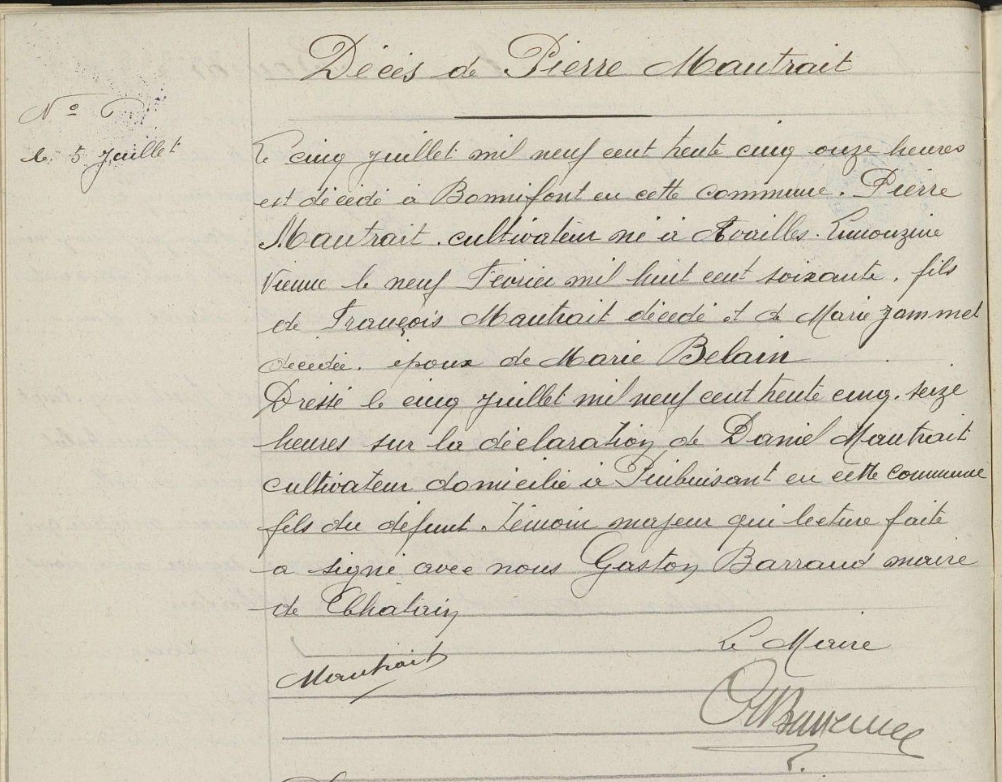 Décès de Pierre Mautrait
N°
le 5 Juillet
Le cinq Juillet mil neuf cent trente cinq onze heures
est décédé à Bonnifont en cette commune. Pierre
Mautrait. cultivateur né à Availles. Limouzine
Vienne le neuf Février mil huit cent soixante. fils
de François Mautrait décédé et de Marie Jammet
décédée. époux de Marie Belain
Dressé le cinq Juillet mil neuf cent trente cinq. seize
heures sur la déclaration de Daniel Mautrait
cultivateur domicilié à en cette commune
fils du défunt. Témoin majeur qui lecture faite
a signé avec nous Gaston Barraud maire
de Chatain
Le Maire
Mautrait